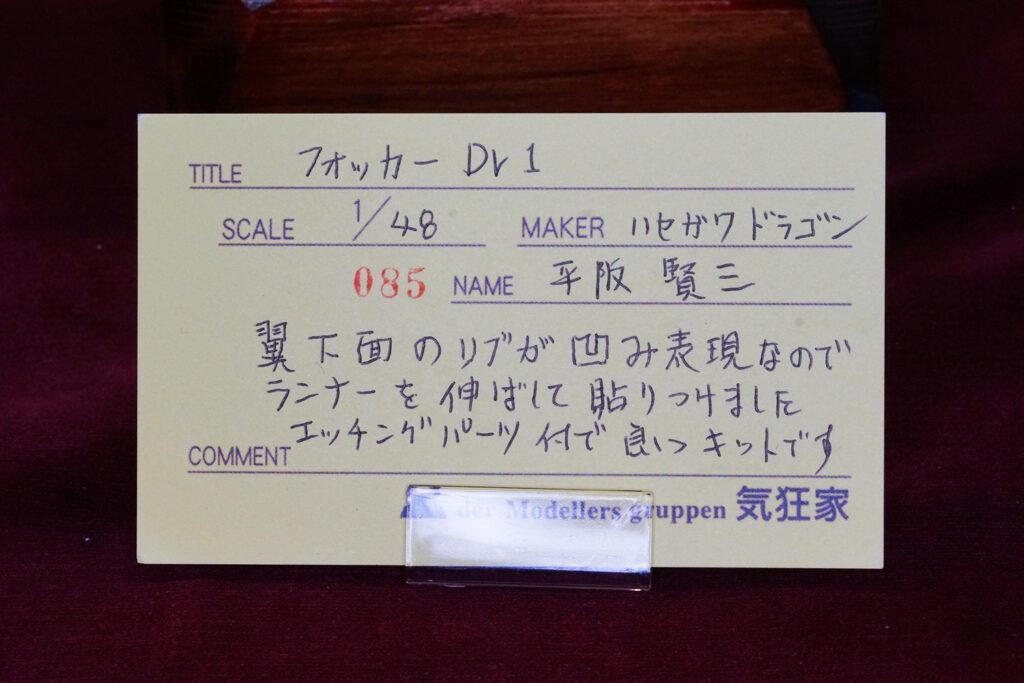 TITLE フォッカー Dr1
SCALE 1/48 MAKER ハセガワ ドラゴン
085 NAME 平阪 賢三
翼下面のリブが凹み表現なので
ランナーを伸ばして貼りつけました
エッチングパーツ付で良いキットです
COMMENT
der Modellers gruppen 気狂家